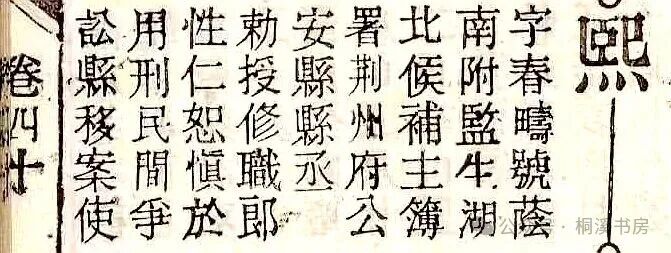 熙
字春疇號蔭
南附監生湖
北候補主簿
署荆州府公
安縣縣丞
勅授修職郎
性仁恕慎於
用刑民間爭
訟縣移案使
卷四十
公众号·桐溪书房